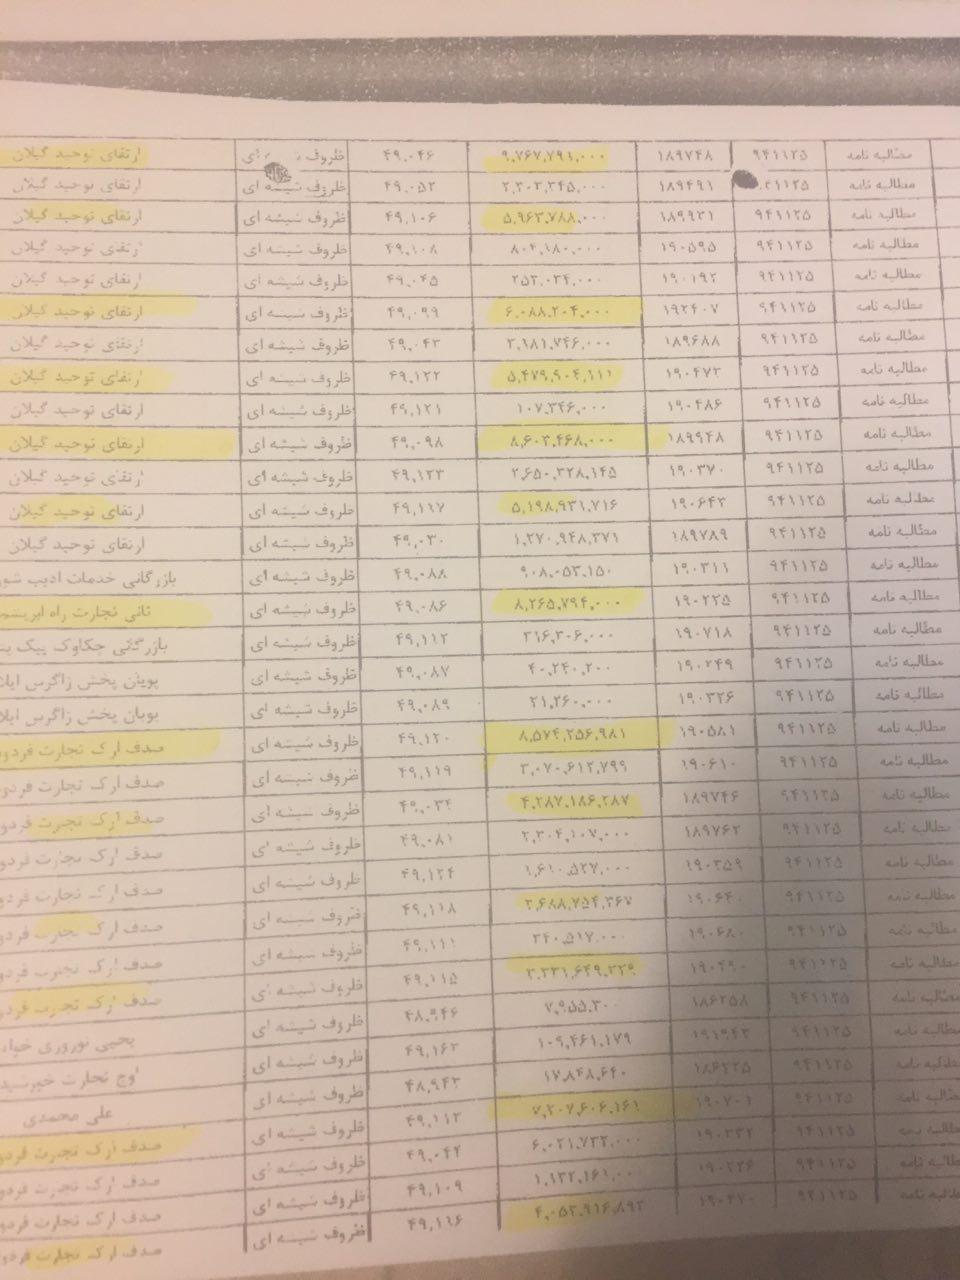 مطالبه نامه ۹۴۱۱۲۵ ۱۸۹۷۴۸ ۹,۷۶۷,۷۹۱,۰۰۰ ۴۹,۰۴۶ ظروف ای ارتقای توحید گیلان
مطالبه نامه ۱۸۹۴۹۱ ۴۹,۰۵۲ ظروف شیشه ای ارتقای توحید گیلان
مطالبه نامه ۹۴۱۱۲۵ ۱۸۹۹۳۱ ۵,۹۶۳,۷۸۸,۰۰۰ ۴۹,۱۰۶ ظروف شیشه ای ارتقای توحید گیلان
مطالبه نامه ۹۴۱۱۲۵ ۱۹۰۵۹۵ ۸۰۴,۱۸۰,۰۰۰ ۴۹,۱۰۸ ظروف شیشه ای ارتقای توحید گیلان
مطالبه نامه ۹۴۱۱۲۵ ۱۹۰۱۹۲ ۲۵۳,۰۳۴,۰۰۰ ۴۹,۰۴۵ ظروف شیشه ای ارتقای توحید گیلان
مطالبه نامه ۹۴۱۱۲۵ ۱۹۲۴۰۷ ۶,۰۸۸,۲۰۴,۰۰۰ ۴۹,۰۹۹ ظروف شیشه ای ارتقای توحید گیلان
مطالبه نامه ۹۴۱۱۲۵ ۱۸۹۶۸۸ ۴۹,۰۴۳ ظروف شیشه ای ارتقای توحید گیلان
مطالبه نامه ۹۴۱۱۲۵ ۱۹۰۴۷۳ ۵,۴۷۹,۹۰۴,۱۱۱ ۴۹,۱۲۲ ظروف شیشه ای ارتقای توحید گیلان
مطالبه نامه ۹۴۱۱۲۵ ۱۹۰۴۸۶ ۱۰۷,۳۴۶,۰۰۰ ۴۹,۱۲۱ ظروف شیشه ای ارتقای توحید گیلان
مطالبه نامه ۹۴۱۱۲۵ ۱۸۹۹۴۸ ۸,۶۰۳,۴۶۸,۰۰۰ ۴۹,۰۹۸ ظروف شیشه ای ارتقای توحید گیلان
مطالبه نامه ۹۴۱۱۲۵ ۱۹۰۳۷۰ ۲,۶۵۰,۳۲۸,۱۴۵ ۴۹,۱۲۳ ظروف شیشه ای ارتقای توحید گیلان
مطالبه نامه ۹۴۱۱۲۵ ۱۹۰۶۴۳ ۵,۱۹۸,۹۳۱,۷۱۶ ۴۹,۱۱۷ ظروف شیشه ای ارتقای توحید گیلان
مطالبه نامه ۹۴۱۱۲۵ ۱۸۹۷۸۹ ۱,۲۷۰,۹۴۸,۳۷۱ ۴۹,۰۳۰ ظروف شیشه ای ارتقای توحید گیلان
مطالبه نامه ۹۴۱۱۲۵ ۱۹۰۳۱۱ ۹۰۸,۰۵۳,۱۵۰ ۴۹,۰۸۸ ظروف شیشه ای بازرگانی خدمات ادیب
مطالبه نامه ۹۴۱۱۲۵ ۱۹۰۲۳۵ ۸,۲۶۵,۷۹۴,۰۰۰ ۴۹,۰۸۶ ظروف شیشه ای ثانی تجارت راه
مطالبه نامه ۹۴۱۱۲۵ ۱۹۰۷۱۸ ۳۱۶,۳۰۶,۰۰۰ ۴۹,۱۱۲ ظروف شیشه ای بازرگانی چکاوک پیک
مطالبه نامه ۹۴۱۱۲۵ ۱۹۰۲۴۹ ۴۰,۲۴۰,۲۰۰ ۴۹,۰۸۷ ظروف شیشه ای پویان پخش زاگرس
مطالبه نامه ۹۴۱۱۲۵ ۱۹۰۳۲۶ ۲۱,۲۶۰,۰۰۰ ۴۹,۰۸۹ ظروف شیشه ای پویان پخش زاگرس
مطالبه نامه ۹۴۱۱۲۵ ۱۹۰۵۸۱ ۸,۵۷۴,۲۵۶,۹۸۱ ۴۹,۱۲۰ ظروف شیشه ای صدف ارک تجارت
مطالبه نامه ۹۴۱۱۲۵ ۱۹۰۶۱۰ ۳,۰۷۰,۶۱۲,۷۹۹ ۴۹,۱۱۹ ظروف شیشه ای صدف ارک تجارت
مطالبه نامه ۹۴۱۱۲۵ ۱۸۹۷۴۶ ۴,۲۸۷,۱۸۶,۲۸۷ ۴۹,۰۳۴ ظروف شیشه ای صدف ارک تجارت
مطالبه نامه ۹۴۱۱۲۵ ۱۸۹۷۶۲ ۲,۳۰۴,۱۰۷,۰۰۰ ۴۹,۰۸۱ ظروف شیشه ای صدف ارک تجارت
مطالبه نامه ۹۴۱۱۲۵ ۱۹۰۳۵۹ ۱,۶۱۰,۵۲۷,۰۰۰ ۴۹,۱۲۴ ظروف شیشه ای صدف ارک تجارت
مطالبه نامه ۹۴۱۱۲۵ ۱۹۰۶۴۰ ۲,۶۸۸,۷۵۴,۳۶۷ ۴۹,۱۱۸ ظروف شیشه ای صدف ارک تجارت
مطالبه نامه ۹۴۱۱۲۵ ۱۹۰۶۸۰ ۳۴۰,۵۱۷,۰۰۰ ۴۹,۱۱۱ ظروف شیشه ای صدف ارک تجارت
مطالبه نامه ۹۴۱۱۲۵ ۱۹۰۴۹۰ ۴۹,۱۱۵ ظروف شیشه ای صدف ارک تجارت
مطالبه نامه ۹۴۱۱۲۵ ۱۸۶۲۵۸ ۷,۹۵۵,۳۰۰ ۴۸,۹۴۶ ظروف شیشه ای یحیی نوروزی
مطالبه نامه ۹۴۱۱۲۵ ۱۹۱۹۴۳ ۱۰۹,۴۶۱,۱۷۹ ۴۹,۱۶۳ ظروف شیشه ای اوج تجارت
مطالبه نامه ۹۴۱۱۲۵ ۱۷,۸۴۸,۶۴۰ ۴۸,۹۴۳ ظروف شیشه ای علی محمدی
مطالبه نامه ۹۴۱۱۲۵ ۱۹۰۷۰۱ ۷,۲۰۷,۶۰۶,۱۶۱ ۴۹,۱۱۳ ظروف شیشه ای صدف ارک تجارت
۹۴۱۱۲۵ ۱۹۰۳۳۲ ۶,۰۲۱,۷۳۲,۰۰۰ ۴۹,۰۴۲ ظروف شیشه ای صدف ارک تجارت
مطالبه نامه ۹۴۱۱۲۵ ۱,۱۳۲,۱۶۱,۰۰۰ ۴۹,۱۰۹ ظروف شیشه ای صدف ارک تجارت
مطالبه نامه ۹۴۱۱۲۵ ۴,۰۵۲,۹۱۶,۸۹۲ ۴۹,۱۱۶ ظروف شیشه ای صدف ارک تجارت